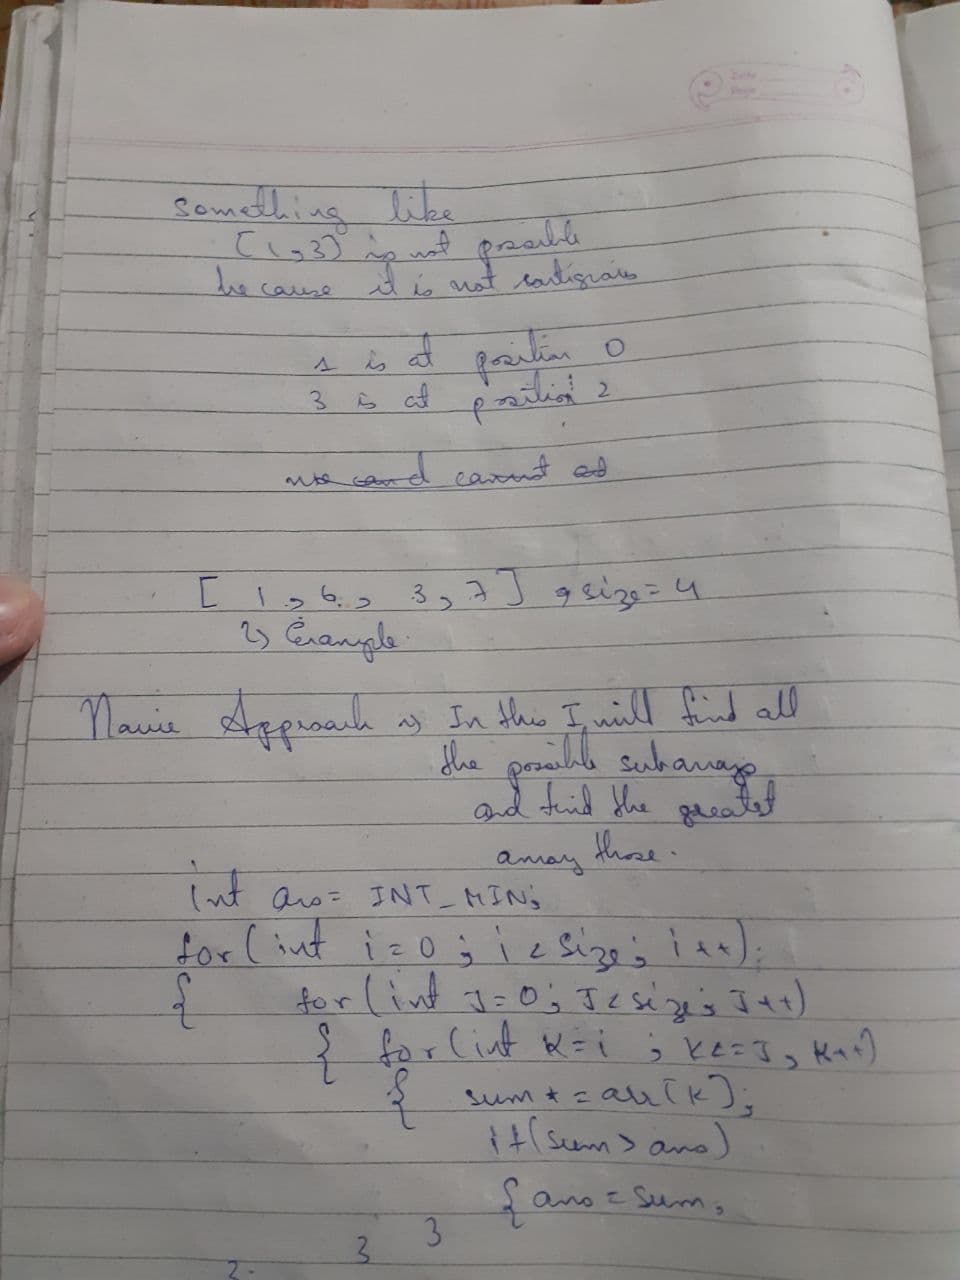 Date
Page
something like
[1,3) is not possible
because it is not contigious
1 is at position 0
3 is at position 2
we can cannot
[ 1, 6, 3, 7 ] , size = 4
2) Example
Navie Approach => In this I will find all
the possible subarrays
and find the greatest
among those.
int ans = INT_MIN;
for (int i = 0 ; i < size ; i++);
{ for (int J = 0 ; J < size ; J++)
{ for (int K = i ; K <= J , K++)
{ sum += arr[K];
if (sum > ans)
{ ans = sum,
} }
}